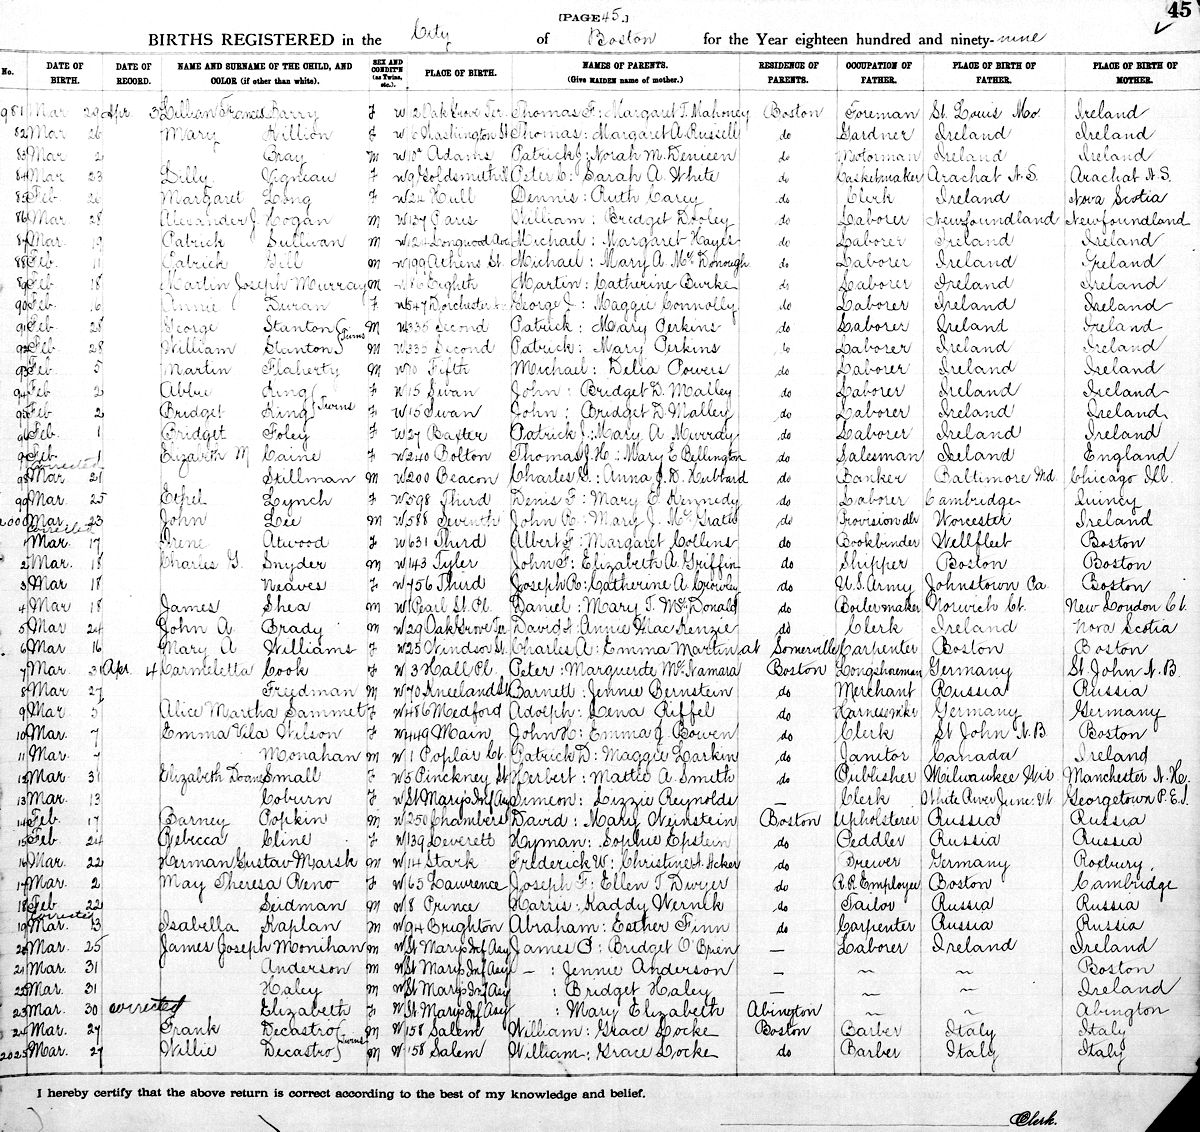 45
[PAGE 45.]
BIRTHS REGISTERED in the City of Boston for the Year eighteen hundred and ninety-nine
No. DATE OF BIRTH. DATE OF RECORD. NAME AND SURNAME OF THE CHILD, AND COLOR (if other than white). SEX AND CONDIT'N (as Twins, etc.). PLACE OF BIRTH. NAMES OF PARENTS. (Give MAIDEN name of mother.) RESIDENCE OF PARENTS. OCCUPATION OF FATHER. PLACE OF BIRTH OF FATHER. PLACE OF BIRTH OF MOTHER.
981 Mar 29 Apr 3 Lillian Frances Barry F W 12 Oak Grove Ter. Thomas F: Margaret T. Mahoney Boston Foreman St. Louis Mo. Ireland
82 Mar 26 Mary Killion F W Washington St Thomas: Margaret A. Russell do Gardner Ireland Ireland
83 Mar 2 Gray M W Adams Patrick J: Norah M. do Motorman Ireland Ireland
84 Mar 23 Lilly Vigneau F W 9 Goldsmith Peter C: Sarah A. White do Casketmaker Arachat N.S. Arachat N.S.
85 Feb 26 Margaret Long F W 24 Hull Dennis: Ruth Carey do Clerk Ireland Nova Scotia
86 Mar 28 Alexander J. Hogan M W 137 Paris William: Bridget Dooley do Laborer Newfoundland Newfoundland
87 Mar. 19 Patrick Sullivan M W 124 Longwood Ave Michael: Margaret Hayes do Laborer Ireland Ireland
88 Feb. 11 Patrick Gill M W 199 Athens St. Michael: Mary A. McDonough do Laborer Ireland Ireland
89 Feb. 18 Martin Joseph Murray M W Eighth Martin: Catherine Burke do Laborer Ireland Ireland
90 Feb. 16 Annie Duran F W 547 Dorchester George J: Maggie Connolly do Laborer Ireland Ireland
91 Feb. 28 George Stanton Twins M W 335 Second Patrick: Mary Perkins do Laborer Ireland Ireland
92 Feb. 28 William Stanton M W 335 Second Patrick: Mary Perkins do Laborer Ireland Ireland
93 Feb. 5 Martin Flaherty M W Fifth Michael: Delia Powers do Laborer Ireland Ireland
94 Feb. 2 Abbie King Twins F W 15 Swan John: Bridget D. Malley do Laborer Ireland Ireland
95 Feb 2 Bridget King F W 15 Swan John: Bridget D. Malley do Laborer Ireland Ireland
96 Feb. 1 Bridget Foley F W 27 Baxter Patrick J.: Mary A. Murray do Laborer Ireland Ireland
97 Feb. 1 Elizabeth M Caine F W 240 Bolton Thomas J.H.: Mary E Bellington do Salesman Ireland England
corrected
98 Mar 21 Stillman M W 200 Beacon Charles G: Anna J.D. Hubbard do Banker Baltimore Md. Chicago Ill.
99 Mar. 25 Ethel Lynch F W 598 Third Denis F: Mary E. Kennedy do Laborer Cambridge Quincy
2000 Mar. 23 John Lee M W 588 Seventh John R: Mary J. McGrath do Provision dlr Worcester Ireland
corrected
1 Mar. 17 Irene Atwood F W 631 Third Albert F: Margaret Collins do Bookbinder Wellfleet Boston
2 Mar. 18 Charles G. Snyder M W 143 Tyler John F: Elizabeth A. Griffin do Shipper Boston Boston
3 Mar 18 Neaves F W 756 Third Joseph R: Catherine A. Crowley do U.S. Army Johnstown Pa Boston
4 Mar 18 James Shea M W 1 Pearl St. Pl. Daniel: Mary T. McDonald do Boilermaker Norwich Ct. New London Ct.
5 Mar 24 John A. Brady M W 29 Oak Grove Ter David: Annie MacKenzie do Clerk Ireland Nova Scotia
6 Mar 16 Mary A Williams F W 25 Windsor St. Charles A: Emma Martin at Somerville Carpenter Boston Boston
7 Mar. 31 Apr. 4 Carmeletta Cook F W 3 Hall Pl. Peter: Marguerite McNamara Boston Longshoreman Germany St. John N.B.
8 Mar. 27 Friedman M W 70 Kneeland St Barnett: Jennie Bernstein do Merchant Russia Russia
9 Mar. 5 Alice Martha Sammet F W 486 Medford Adolph: Lena Riffel do Harnessmkr Germany Germany
10 Mar. 7 Emma Vila Wilson F W 449 Main John H: Emma J. Bowen do Clerk St John N.B. Boston
11 Mar. 7 Monahan M W 1 Poplar Ct. Patrick D: Maggie Larkin do Janitor Canada Ireland
12 Mar. 31 Elizabeth Doane Small F W 5 Pinckney St Herbert: Mattie A. Smith do Publisher Milwaukee Wis Manchester N.H.
13 Mar. 13 Coburn F W St Marys Inf Asy Simeon: Lizzie Reynolds — Clerk White River Junc. Vt Georgetown P.E.I.
14 Feb. 17 Barney Popkin M W 250 Chambers David: Mary Weinstein Boston Upholsterer Russia Russia
15 Feb 24 Rebecca Cline F W 139 Leverett Hyman: Sophie Epstein do Peddler Russia Russia
16 Mar. 22 Herman Gustav Marsh M W 14 Stark Frederick W: Christine A. Acker do Brewer Germany Roxbury
17 Mar. 2 May Theresa Reno F W 65 Lawrence Joseph F: Ellen T Dwyer do R.R. Employee Boston Cambridge
18 Feb 22 Seidman M W 8 Prince Harris: Kaddy Wernik do Tailor Russia Russia
corrected
19 Mar. 13 Isabella Kaplan F W 94 Brighton Abraham: Esther Finn do Carpenter Russia Russia
20 Mar. 25 James Joseph Monihan M W St Marys Inf Asy James O: Bridget O'Brien — Laborer Ireland Ireland
21 Mar. 31 Anderson M W St Marys Inf Asy — : Jennie Anderson — ~ ~ Boston
22 Mar. 31 Haley M W St Marys Inf Asy : Bridget Haley — ~ ~ Ireland
23 Mar. 30 corrected Elizabeth F W St Marys Inf Asy : Mary Elizabeth Abington ~ ~ Abington
24 Mar. 27 Frank Decastro Twins M W 158 Salem William: Grace Locke Boston Barber Italy Italy
2025 Mar. 27 Willie Decastro M W 158 Salem William: Grace Locke do Barber Italy Italy
I hereby certify that the above return is correct according to the best of my knowledge and belief.
Clerk.